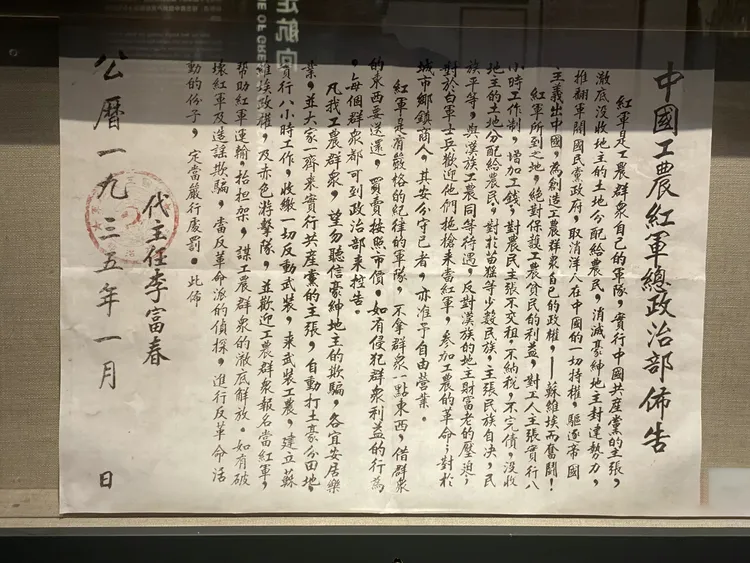 中國工農紅軍總政治部佈告
紅軍是工農群衆自己的軍隊,實行中國共産黨的主張,
澈底沒收地主的土地分配給農民,消滅豪紳地主封建勢力,
推翻軍閥國民黨政府,取消洋人在中國的一切持權,驅逐帝國
主義出中國,為創造工農群衆自己的政權,——蘇維埃而奮鬪!
紅軍所到之地,絕對保護工農貧民的利益,對工人主張實行八
小時工作制,增加工錢,對農民主張不交租,不納稅,不完債,沒收
地主的土地分配給農民,對於苗猺等少數民族,主張民族自決,民
族平等,與漢族工農同等待遇,反對漢族的地主財富老的壓迫;
對於白軍士兵歡迎他們拖槍來當紅軍,參加工農的革命;對於
城市鄉鎮商人,其安分守己者,亦准予自由營業。
紅軍是有嚴格的紀律的軍隊,不拿群衆一點東西,借群衆
的東西要送還,買賣按照市價。如有侵犯群衆利益的行為
,每個群衆都可到政治部來控告。
凡我工農群衆,望勿聽信豪紳地主的欺騙,各宜安居樂
業,並大家一齊來實行共産黨的主張,自動打土豪分田地,
實行八小時工作,收繳一切反動武裝,來武裝工農,建立蘇
維埃政權,及赤色游擊隊,並歡迎工農群衆報名當紅軍,
帮助紅軍運輸,抬担架,謀工農群衆的澈底解放。如有破
壞紅軍及造謠欺騙,當反革命派的偵探,進行反革命活
動的份子,定當嚴行處罰。此佈
代主任李富春
公曆一九三五年一月 日
定航向